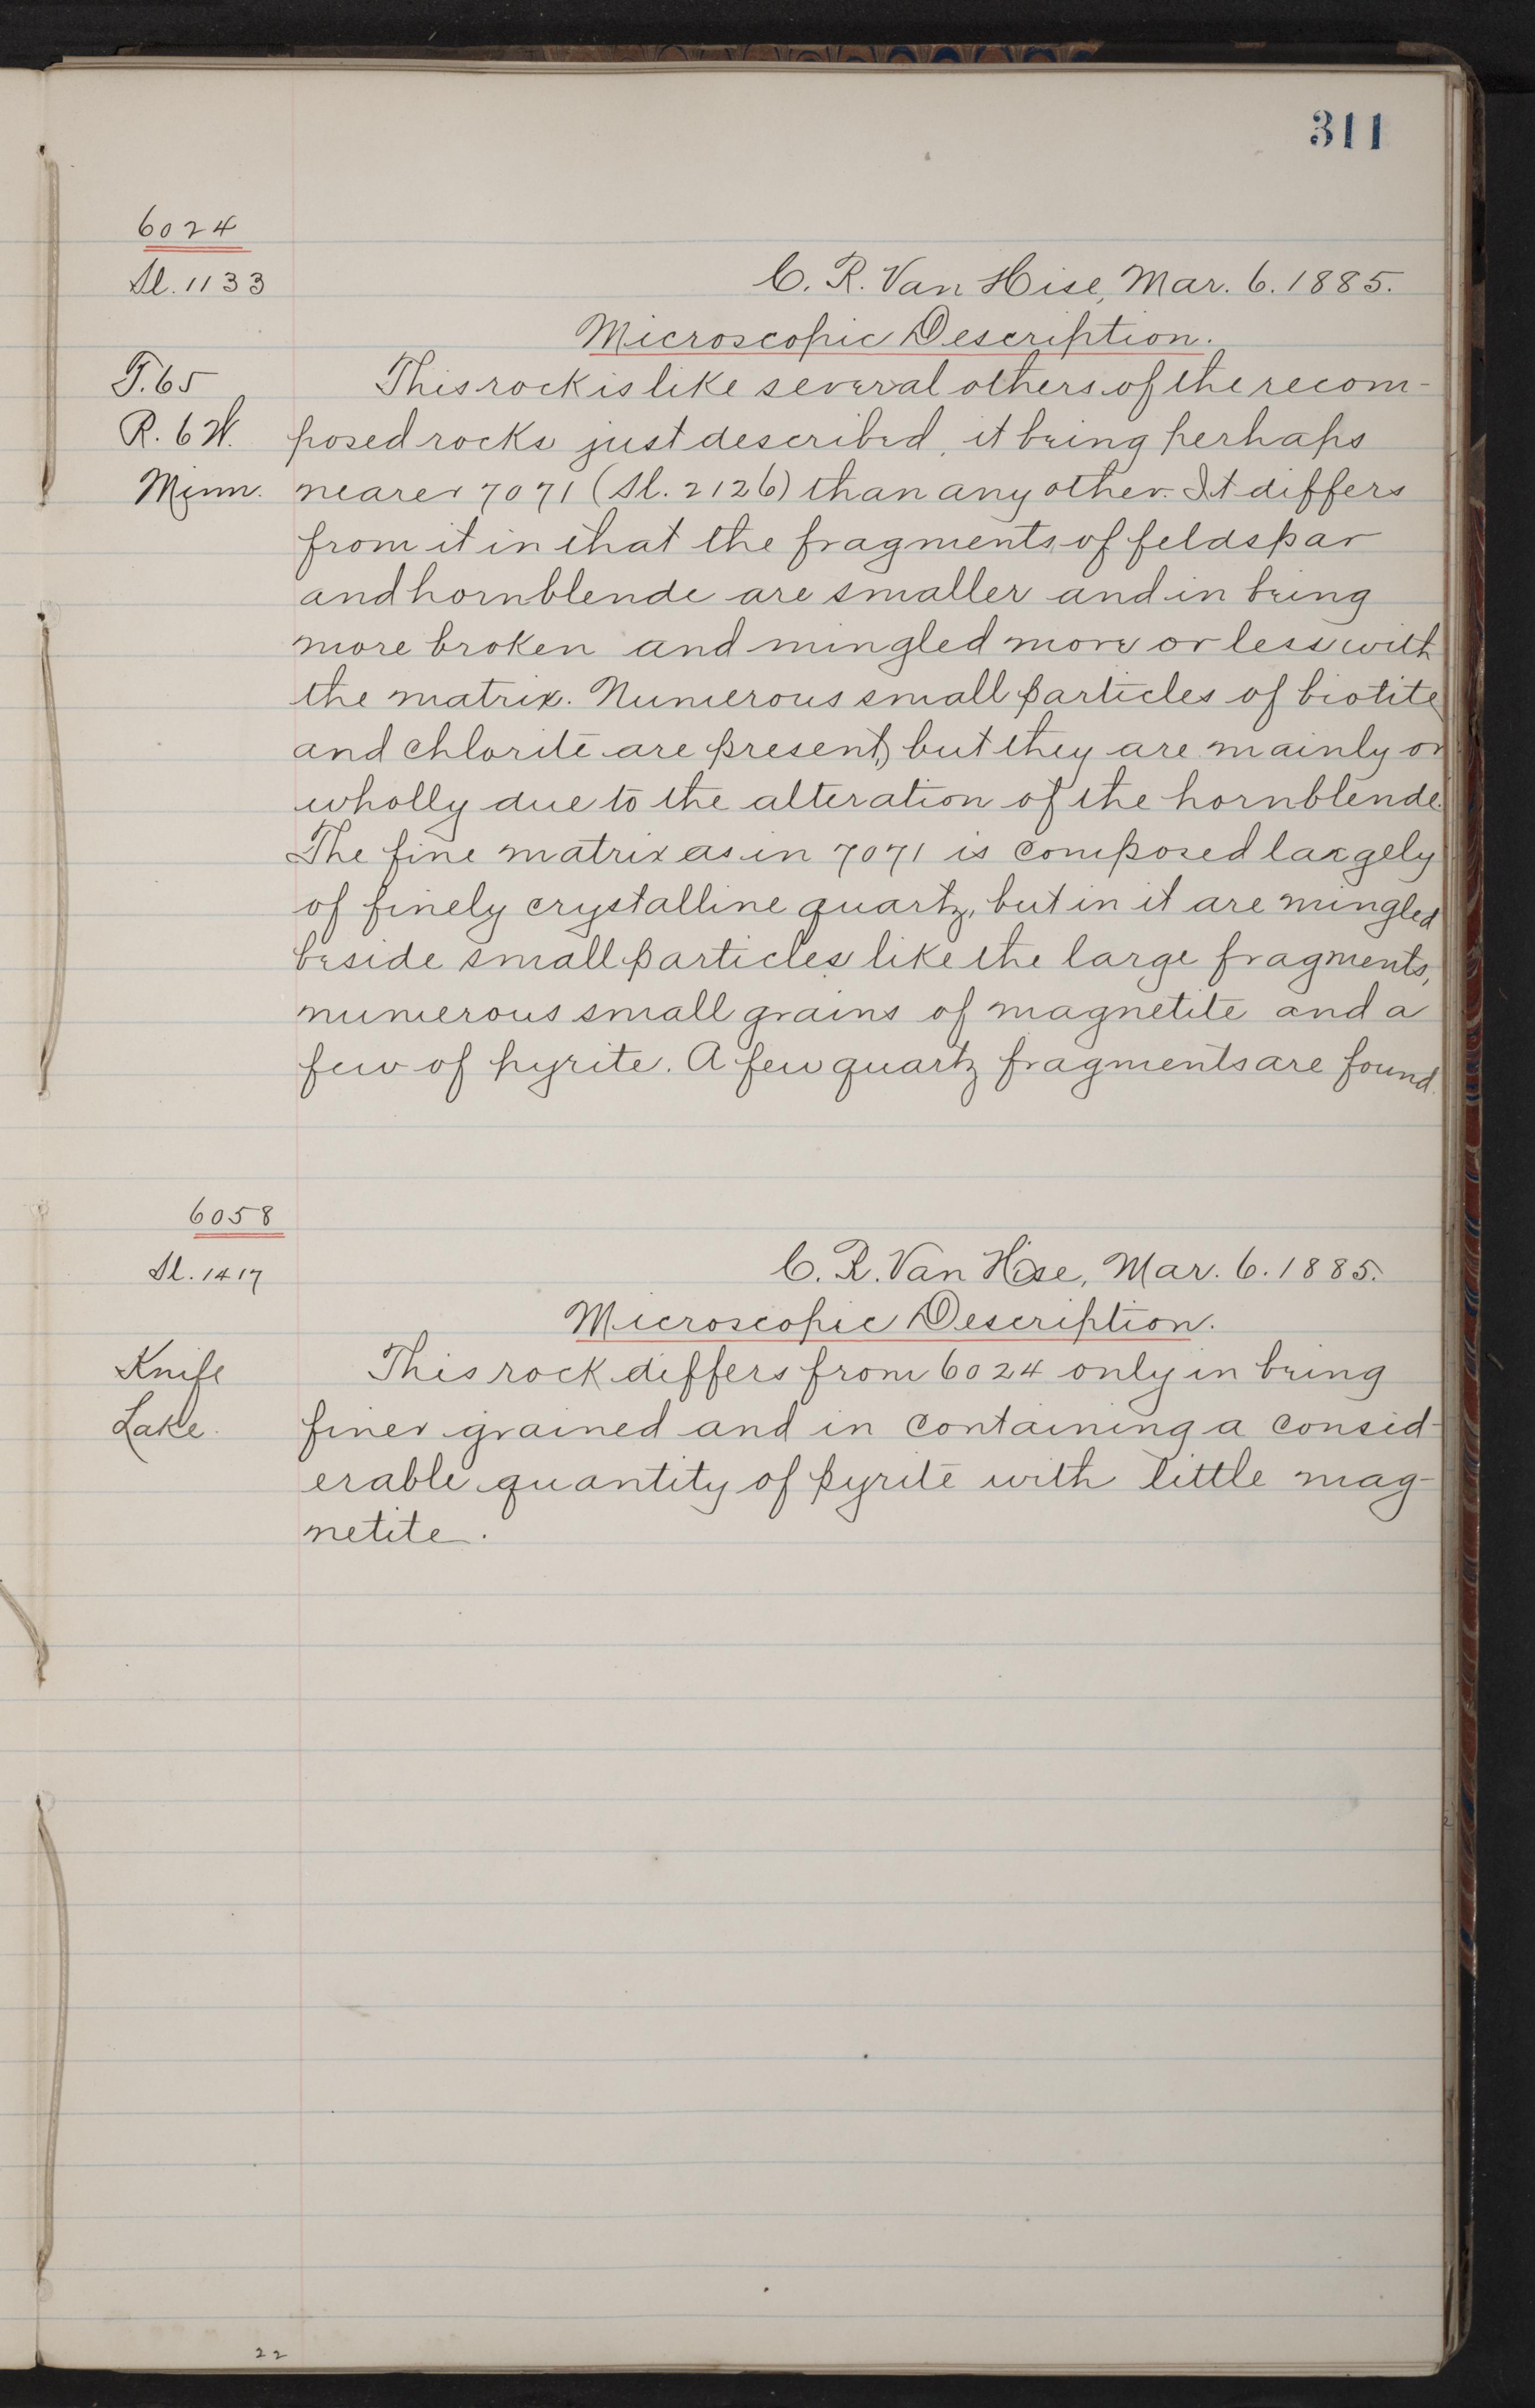 311
6024
Sl. 1133
C. R. Van Hise, Mar. 6. 1885.
Microscopic Description.
T. 65
R. 6 W.
Minn.
This rock is like several others of the recom-
posed rocks just described, it being perhaps
nearer 7071 (Sl. 2126) than any other. It differs
from it in that the fragments of feldspar
and hornblende are smaller and in being
more broken and mingled more or less with
the matrix. Numerous small particles of biotite
and chlorite are present, but they are mainly or
wholly due to the alteration of the hornblende.
The fine matrix as in 7071 is composed largely
of finely crystalline quartz, but in it are mingled
beside small particles like the large fragments,
numerous small grains of magnetite and a
few of pyrite. A few quartz fragments are found.
6058
Sl. 1417
C. R. Van Hise, Mar. 6. 1885.
Microscopic Description.
Knife
Lake.
This rock differs from 6024 only in being
finer grained and in containing a consid-
erable quantity of pyrite with little mag-
netite.
22